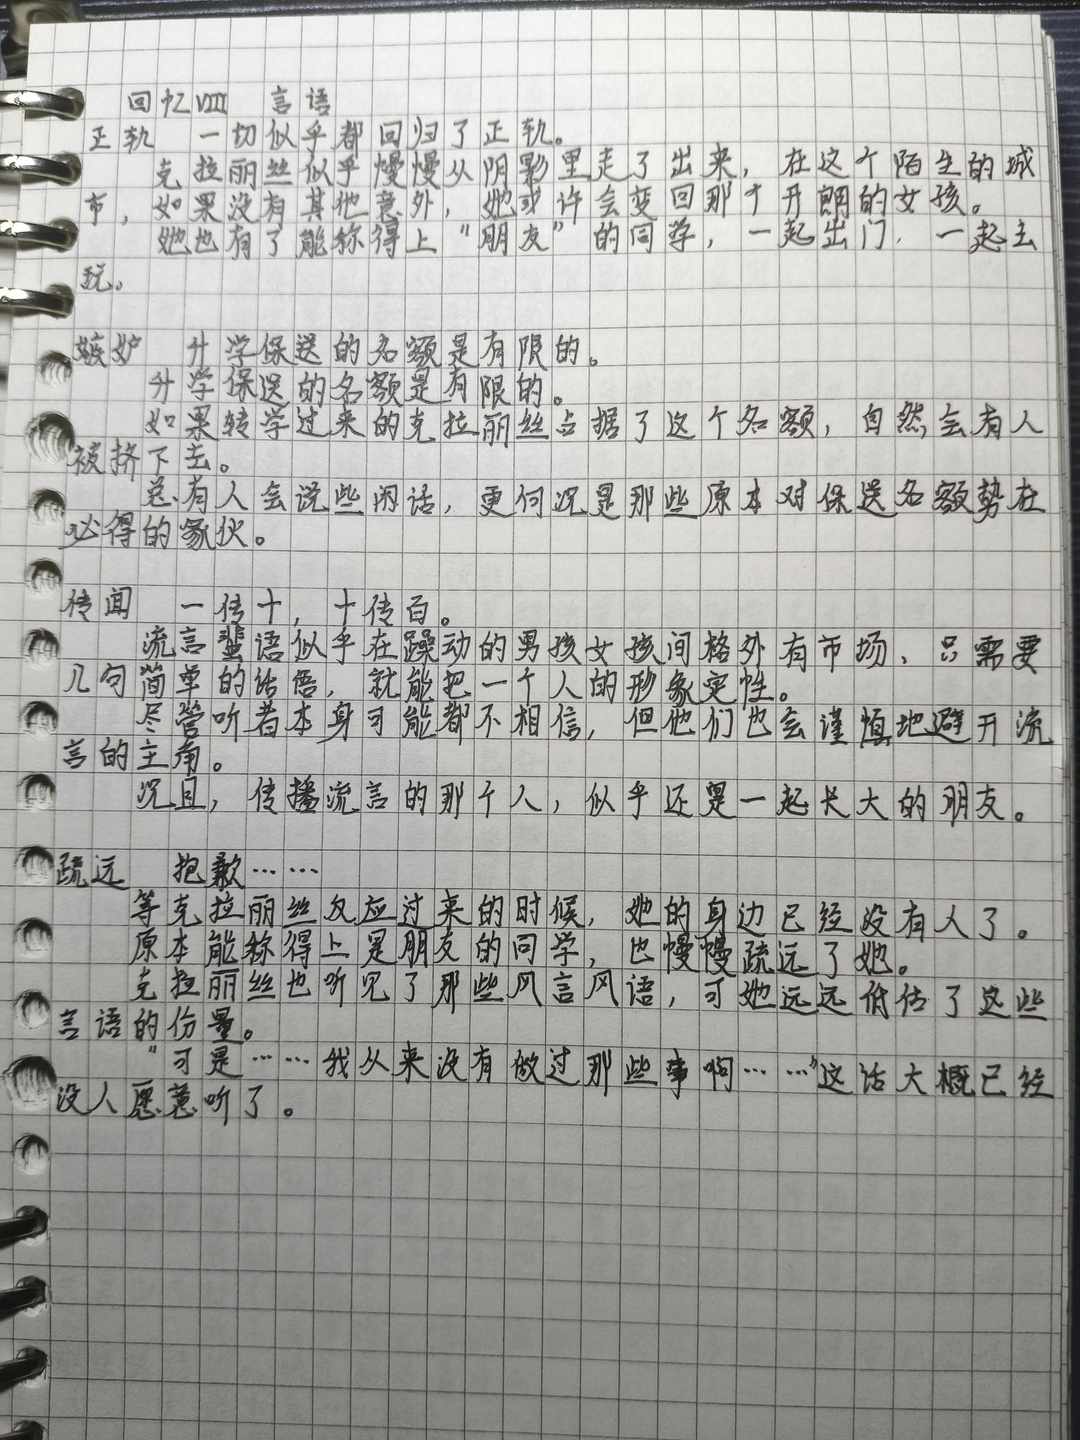 回忆VIII 言语
正轨 一切似乎都回归了正轨。
克拉丽丝似乎慢慢从阴影里走了出来，在这个陌生的城
市，如果没有其他意外，她或许会变回那个开朗的女孩。
她也有了能称得上“朋友”的同学，一起出门，一起去
玩。
嫉妒 升学保送的名额是有限的。
升学保送的名额是有限的。
如果转学过来的克拉丽丝占据了这个名额，自然会有人
被挤下去。
总有人会说些闲话，更何况是那些原本对保送名额势在
必得的家伙。
传闻 一传十，十传百。
流言蜚语似乎在躁动的男孩女孩间格外有市场，只需要
几句简单的话语，就能把一个人的形象定性。
尽管听者本身可能都不相信，但他们也会谨慎地避开流
言的主角。
况且，传播流言的那个人，似乎还是一起长大的朋友。
疏远 抱歉……
等克拉丽丝反应过来的时候，她的身边已经没有人了。
原本能称得上是朋友的同学，也慢慢疏远了她。
克拉丽丝也听见了那些风言风语，可她远远低估了这些
言语的份量。
“可是……我从来没有做过那些事啊……”这话大概已经
没人愿意听了。